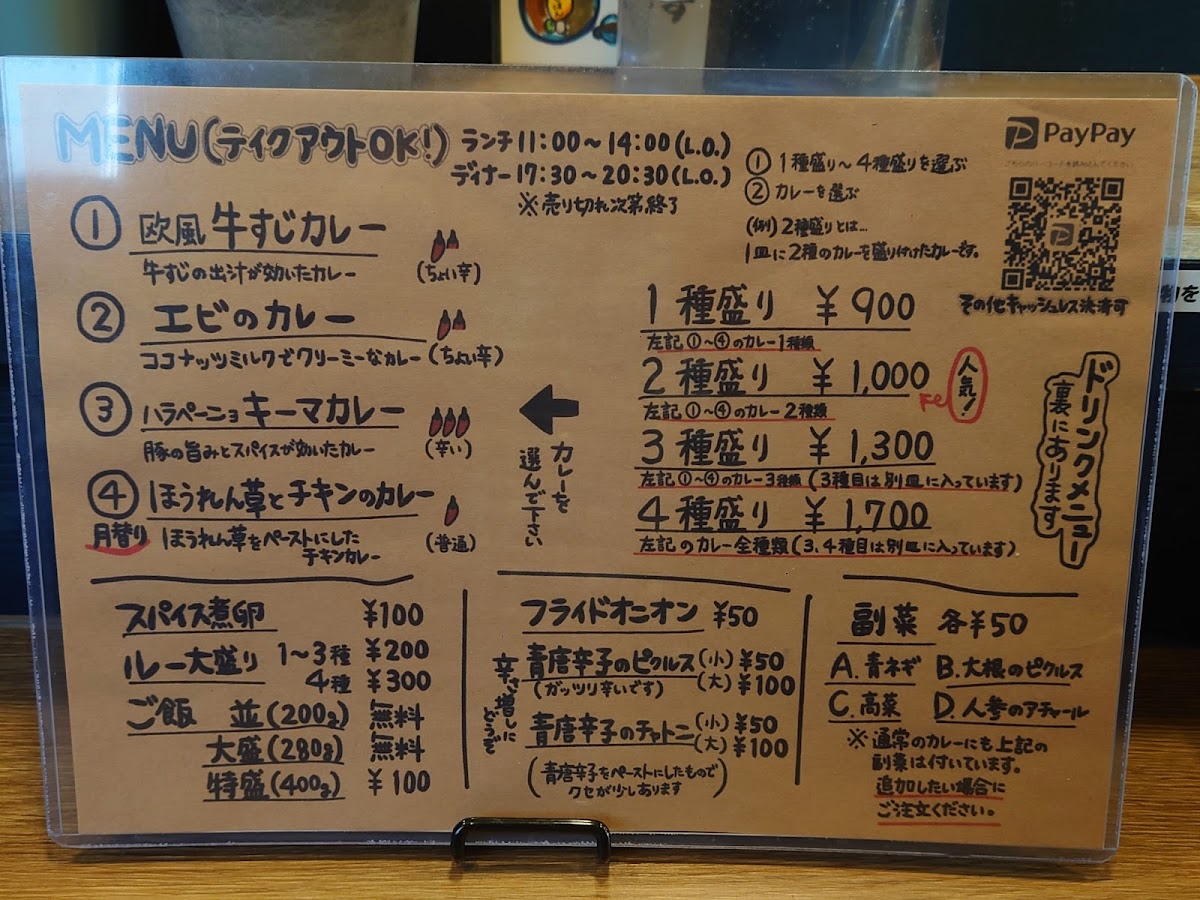 MENU(テイクアウトOK!)
ランチ 11:00～14:00(L.O.)
ディナー 17:30～20:30(L.O.)
※売り切れ次第終了
① 1種盛り～4種盛りを選ぶ
② カレーを選ぶ
(例) 2種盛りとは…
1皿に2種のカレーを盛り付けたカレーです。
PayPay
その他キャッシュレス決済可
① 欧風 牛すじカレー
牛すじの出汁が効いたカレー
(ちょい辛)
② エビのカレー
ココナッツミルクでクリーミーなカレー
(ちょい辛)
③ ハラペーニョ キーマカレー
豚の旨みとスパイスが効いたカレー
(辛い)
④ ほうれん草とチキンのカレー
月替り
ほうれん草をペーストにした
チキンカレー
(普通)
カレーを
選んで下さい
1種盛り ¥900
左記①～④のカレー1種類
2種盛り ¥1,000
人気!
左記①～④のカレー2種類
3種盛り ¥1,300
左記①～④のカレー3種類(3種目は別皿に入っています)
4種盛り ¥1,700
左記のカレー全種類(3、4種目は別皿に入っています)
ドリンクメニュー
裏にあります
スパイス煮卵 ¥100
ルー大盛り 1～3種 ¥200
4種 ¥300
ご飯 並(200g) 無料
大盛(280g) 無料
特盛(400g) ¥100
フライドオニオン ¥50
辛さ増しに
どうぞ
青唐辛子のピクルス(小) ¥50
(ガッツリ辛いです) (大) ¥100
青唐辛子のチャトニ(小) ¥50
(大) ¥100
(青唐辛子をペーストにしたもので
クセが少しあります)
副菜 各¥50
A.青ネギ B.大根のピクルス
C.高菜 D.人参のアチャール
※通常のカレーにも上記の
副菜は付いています。
追加したい場合に
ご注文ください。